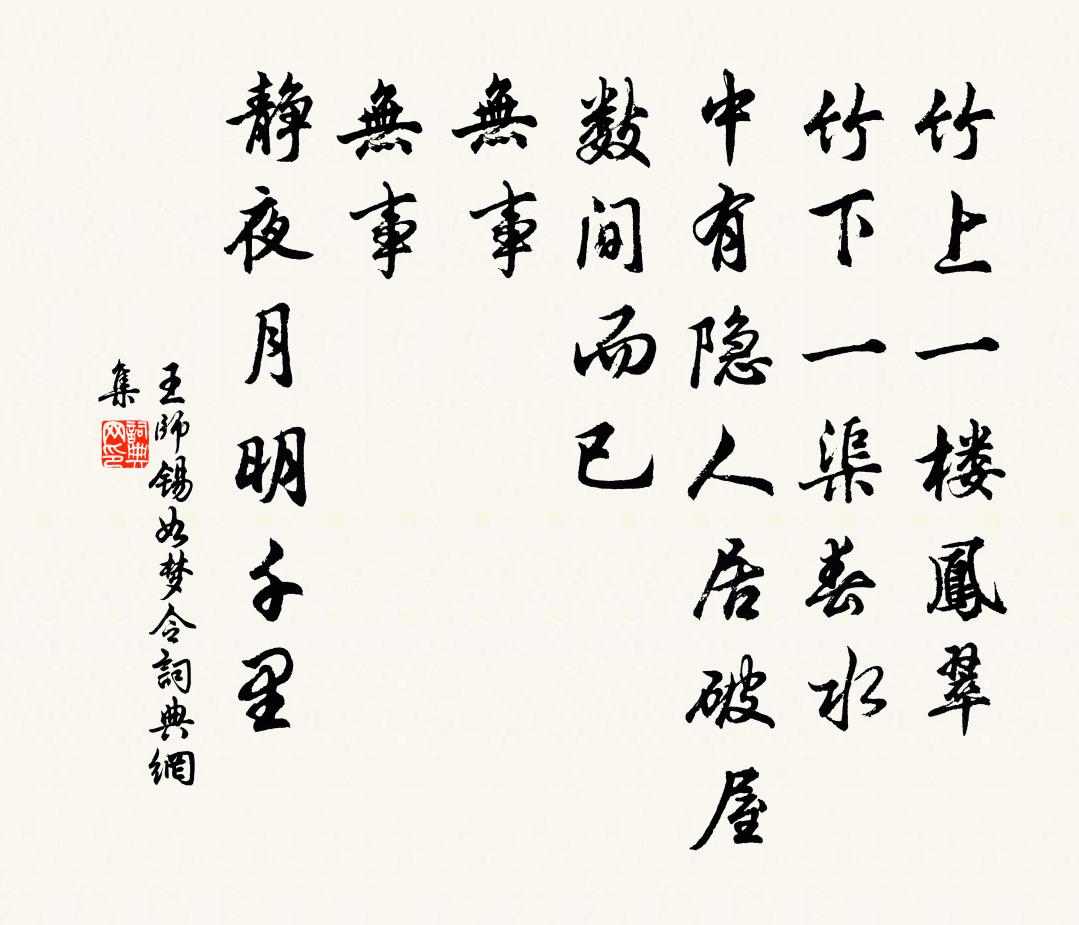 竹上一楼鳳翠
竹下一渠春水
中有隐人居破屋
数间而已
無事
無事
静夜月明千里
王師锡如梦令詞典網
集
詞典网印